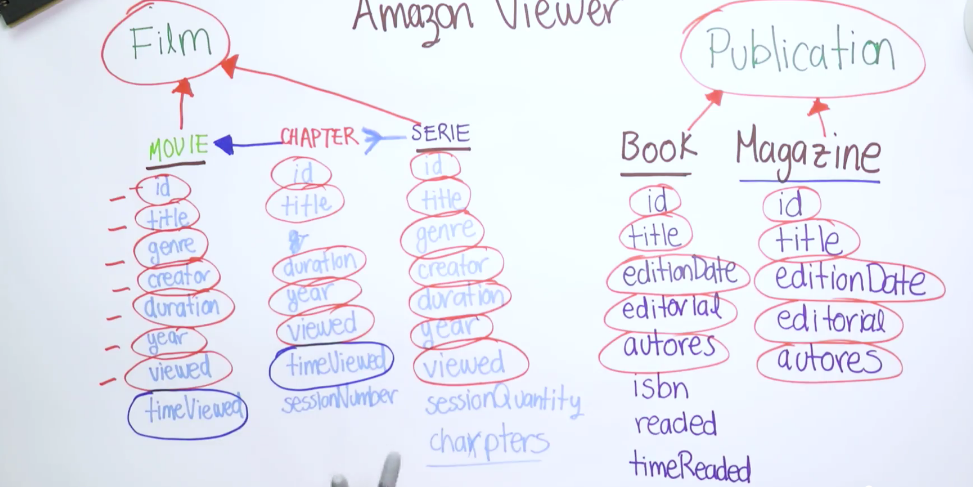 Amazon Viewer
Film
Publication
MOVIE
id
title
genre
creator
duration
year
viewed
timeViewed
CHAPTER
id
title
duration
year
viewed
timeViewed
sessionNumber
SERIE
id
title
genre
creator
duration
year
viewed
sessionQuantity
charpters
Book
id
title
editionDate
editorial
autores
isbn
readed
timeReaded
Magazine
id
title
editionDate
editorial
autores